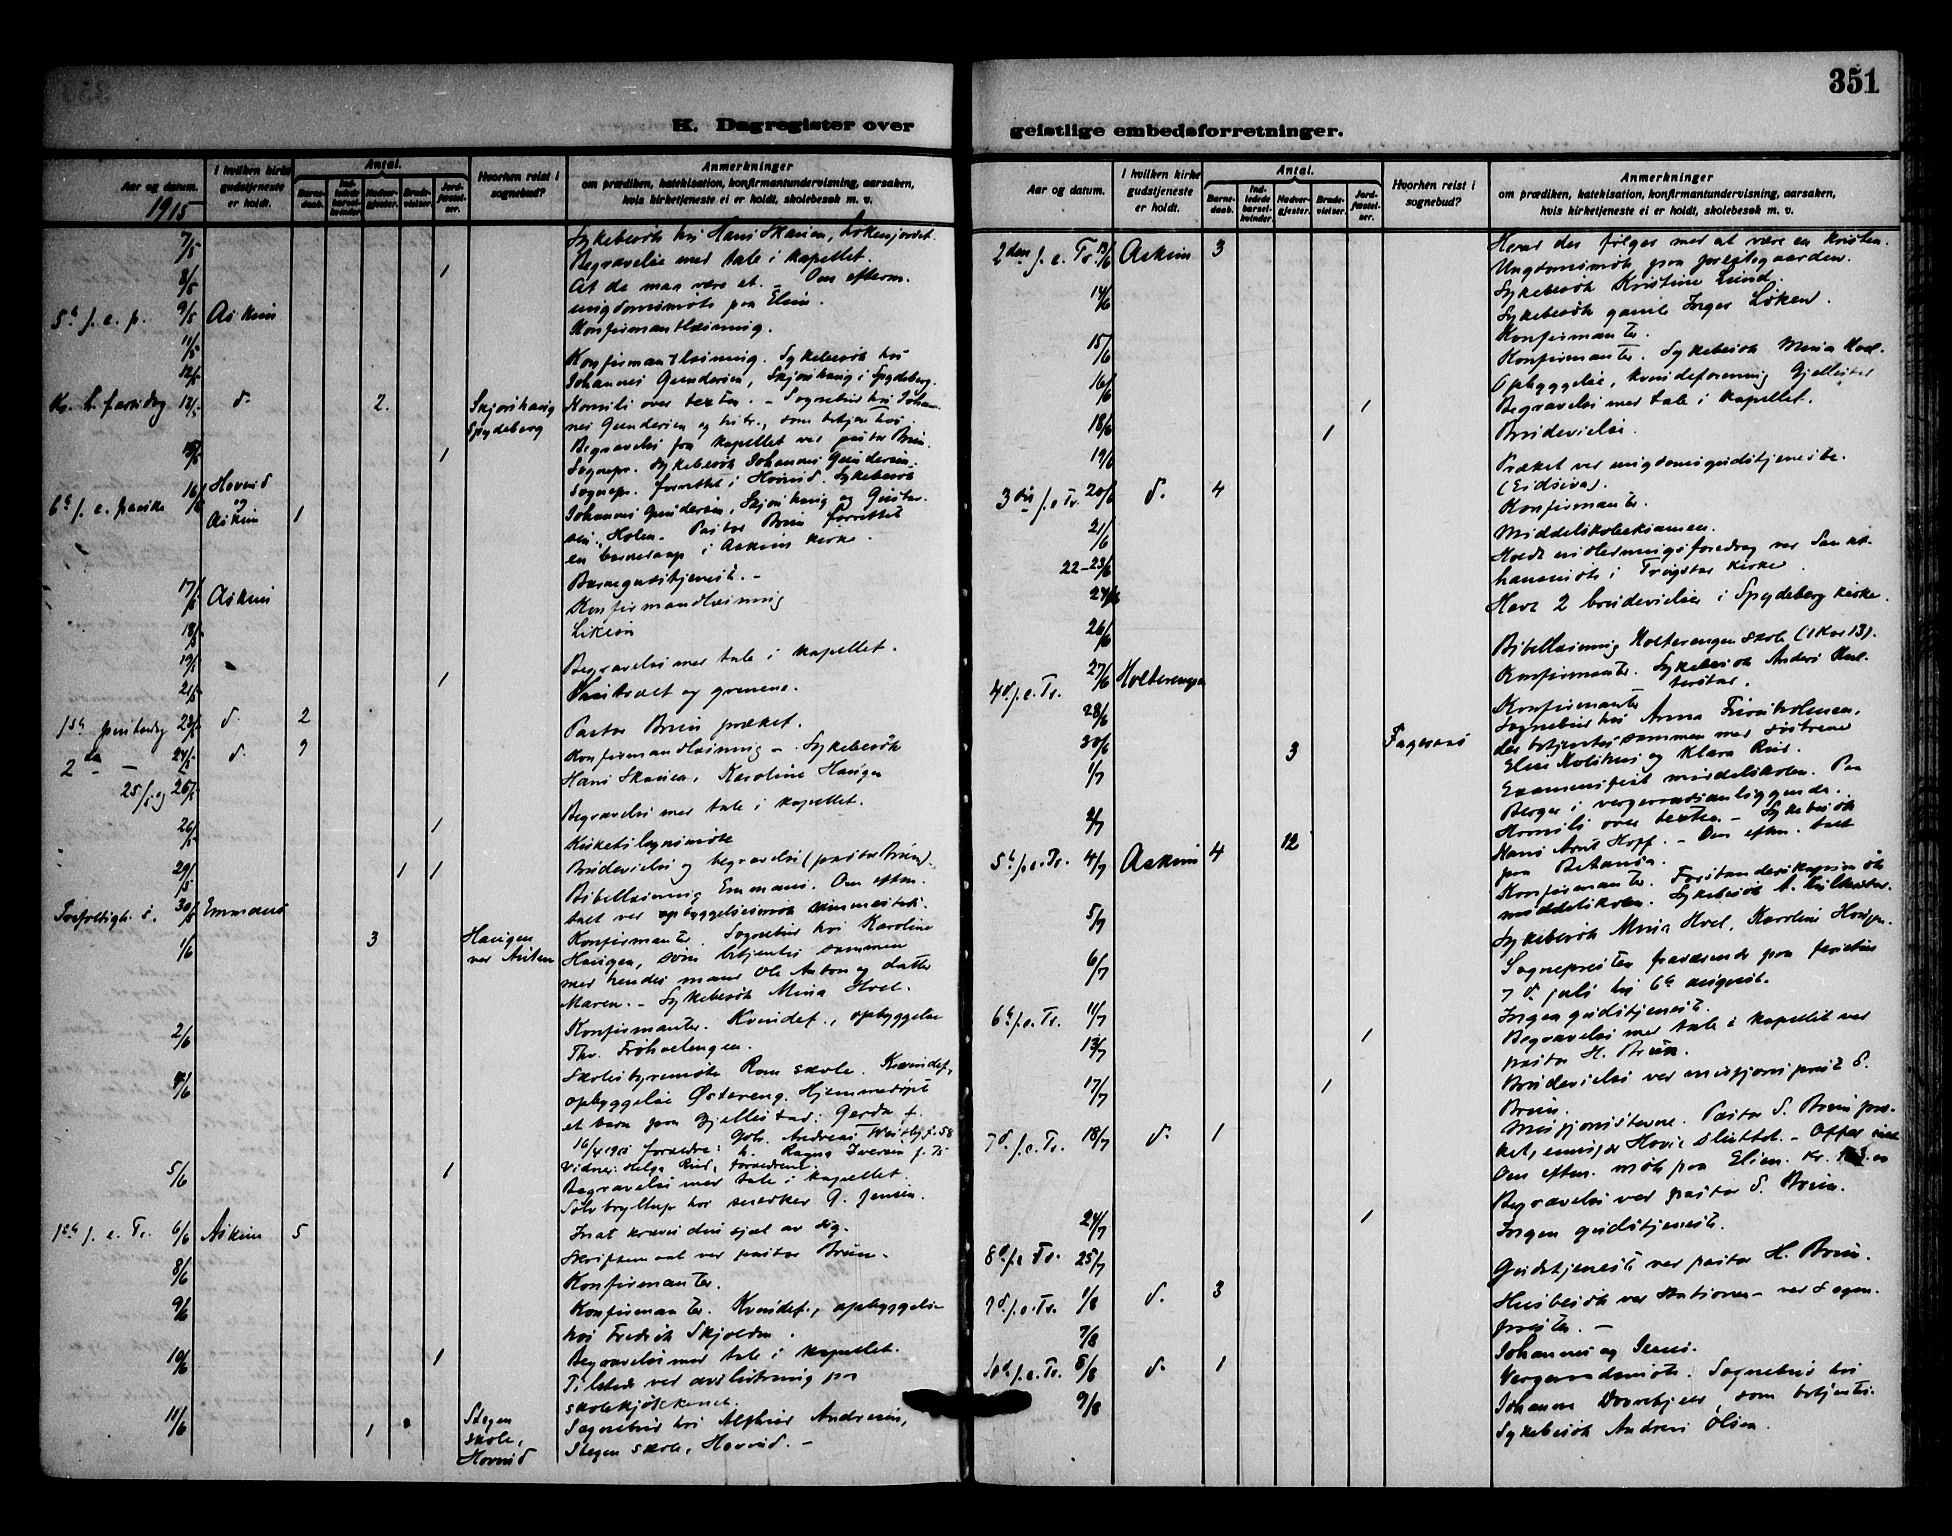 K. Dagregister over
Aar og datum.
1915
I hvilken kirke gudstjeneste er holdt.
Antal.
Barnedaab.
Indledede barselkvinder.
Nadvergjester.
Brudevielser.
Jordfæstelser.
Hvorhen reist i sognebud?
Anmerkninger
om prædiken, katekisation, konfirmantundervisning, aarsaken,
hvis kirketjeneste ei er holdt, skolebesøk m. v.
7/5 Sykebesøk hos Hans Skansen,
8/5 1 Begravelse med tale i kapellet.
5te s. e. p. 9/5 Askim At de maa være et. – Om efterm.
ungdomsmøte paa Elim.
11/5 Konfirmantlæsning.
12/5 Konfirmantlæsning. Sykebesøk hos
Johannes Gundersen, Skjorhaug i Spydeberg.
Kr. h. farsdag 13/5 d. 2 Skjorhaug Spydeberg Homili over texten. – Sognebud hos Johan-
nes Gundersen og hustr., som betjentes.
15/5 1 Begravelse fra kapellet ved pastor Bruun.
Sognepr. sykebesøk Johannes Gundersen.
6te s. e. paaske 16/5 Hovind og Askim 1 Sognepr. forrettet i Hovind. Sykebesøk
Johannes Gundersen, Skjorhaug og Gustav-
sen, Holen. Pastor Bruun forrettet
en barnedaap i Askim kirke.
17/5 Askim Barnegudstjeneste. –
18/5 Konfirmandlæsning
19/5 Liksyn
21/5 1 Begravelse med tale i kapellet.
1ste pinsedag 23/5 d. 2 Vintræet og grenene.
2den – – 24/5 d. 9 Pastor Bruun præket.
25/5 og 26/5 Konfirmandlæsning – Sykebesøk
Hans Skansen, Karoline Haugen
26/5 1 Begravelse med tale i kapellet.
Kirketilsynsmøte
29/5 1 1 Brudevielse og begravelse (pastor Bruun).
Trefoldigh. s. 30/5 Emmaus Bibellæsning Emmaus. Om eftm.
talt ved opbyggelsesmøte sammesteds.
1/6 3 Haugen ved Auten Konfirmanter. Sognebud hos Karoline
Haugen, som betjentes sammen
med hendes mand Ole Anton og datter
Maren. – Sykebesøk Mina Hoel.
2/6 Konfirmanter. Kvindef., opbyggelse
Thv. Frøhaelengen.
4/6 Skolestyremøte Rom skole. Kvindef.,
opbyggelse Østereng. Hjemmedøpt
et barn paa Gjellestad: Gerda f.
16/4 1915 forældre: Andreas
Ragna Iversen f. 75
Vidner: Helga Rud, forældrene.
5/6 1 Begravelse med tale i kapellet.
Sølvbryllup hos snedker G. Jensen.
1ste s. e. Tr. 6/6 Askim 5 I nat kræves din sjæl av dig.
Skriftemaal ved pastor Bruun.
8/6 Konfirmanter.
9/6 Konfirmanter. Kvindef., opbyggelse
hos Fredrik Skjolden.
10/6 1 Begravelse med tale i kapellet.
Tilstede ved avslutning paa
skolekjøkkenet.
11/6 1 Stegen skole, Hovind Sognebud hos Alfhild Andresen,
Stegen skole, Hovind. –
351
geistlige embedsforretninger.
Aar og datum.
I hvilken kirke gudstjeneste er holdt.
Antal.
Barnedaab.
Indledede barselkvinder.
Nadvergjester.
Brudevielser.
Jordfæstelser.
Hvorhen reist i sognebud?
Anmerkninger
om prædiken, katekisation, konfirmantundervisning, aarsaken,
hvis kirketjeneste ei er holdt, skolebesøk m. v.
2den s. e. Tr. 13/6 Askim 3 Hvad der følger med at være en kristen.
Ungdomsmøte paa prestegaarden.
14/6 Sykebesøk Kristine Lund.
Sykebesøk gamle Inger Løken.
15/6 Konfirmanter.
16/6 Konfirmanter. Sykebesøk Mina Hoel.
Opbyggelse, kvindeforening Gjellestad
18/6 1 Begravelse med tale i kapellet.
19/6 1 Brudevielse.
3die s. e. Tr. 20/6 d. 4 Præket ved ungdomsgudstjeneste.
(Eidsiva).
21/6 Konfirmanter.
22–23/6 Middelskoleeksamen.
24/6 Holdt indledningsforedrag ved Sankt-
hansmøte i Trøgstad kirke.
26/6 Havt 2 brudevielser i Spydeberg kirke.
4de s. e. Tr. 27/6 Holterengen Bibellæsning Holterengen skole (1 Kor 13).
28/6 Konfirmanter. Sykebesøk Anders
30/6 3 Konfirmanter
Sognebud hos Anna
der betjentes sammen med søstrene
Elise og Klara Rud.
1/7 Examensfest middelskolen. Paa
2/7 Berger i vergeraadsanliggende.
5te s. e. Tr. 4/7 Askim 4 12 Homili over texten – Sykebesøk
Hans Arnt Hoff. – Om eftm. talt
paa Betania.
5/7 Konfirmanter. Forstanderskapsmøte
middelskolen. Sykebesøk A.
6/7 Sykebesøk Mina Hoel, Karoline Haugen.
Sognepresten fraværende paa ferietur
7de juli til 6te august.
6te s. e. Tr. 11/7 Ingen gudstjeneste.
13/7 1 Begravelse med tale i kapellet ved
pastor H. Bruun.
17/7 1 Brudevielse ved misjonsprest S.
Bruun.
7de s. e. Tr. 18/7 d. 1 Misjonsstevne. Pastor S. Bruun præ-
ket, emisjær Hovie sluttet. – Offer
Om eftm. møte paa Elim. Kr.
24/7 1 Begravelse ved pastor S. Bruun.
8de s. e. Tr. 25/7 Ingen gudstjeneste.
9de s. e. Tr. 1/8 d. 3 Gudstjeneste ved pastor H. Bruun.
7/8 Husbesøk ved stationen – ved sogne-
presten. –
10de s. e. Tr. 8/8 d. 1 Johannes og Jesus.
9/8 Vergeraadsmøte. Sognebud hos
Johanne som betjentes.
Sykebesøk Andreas Olsen.